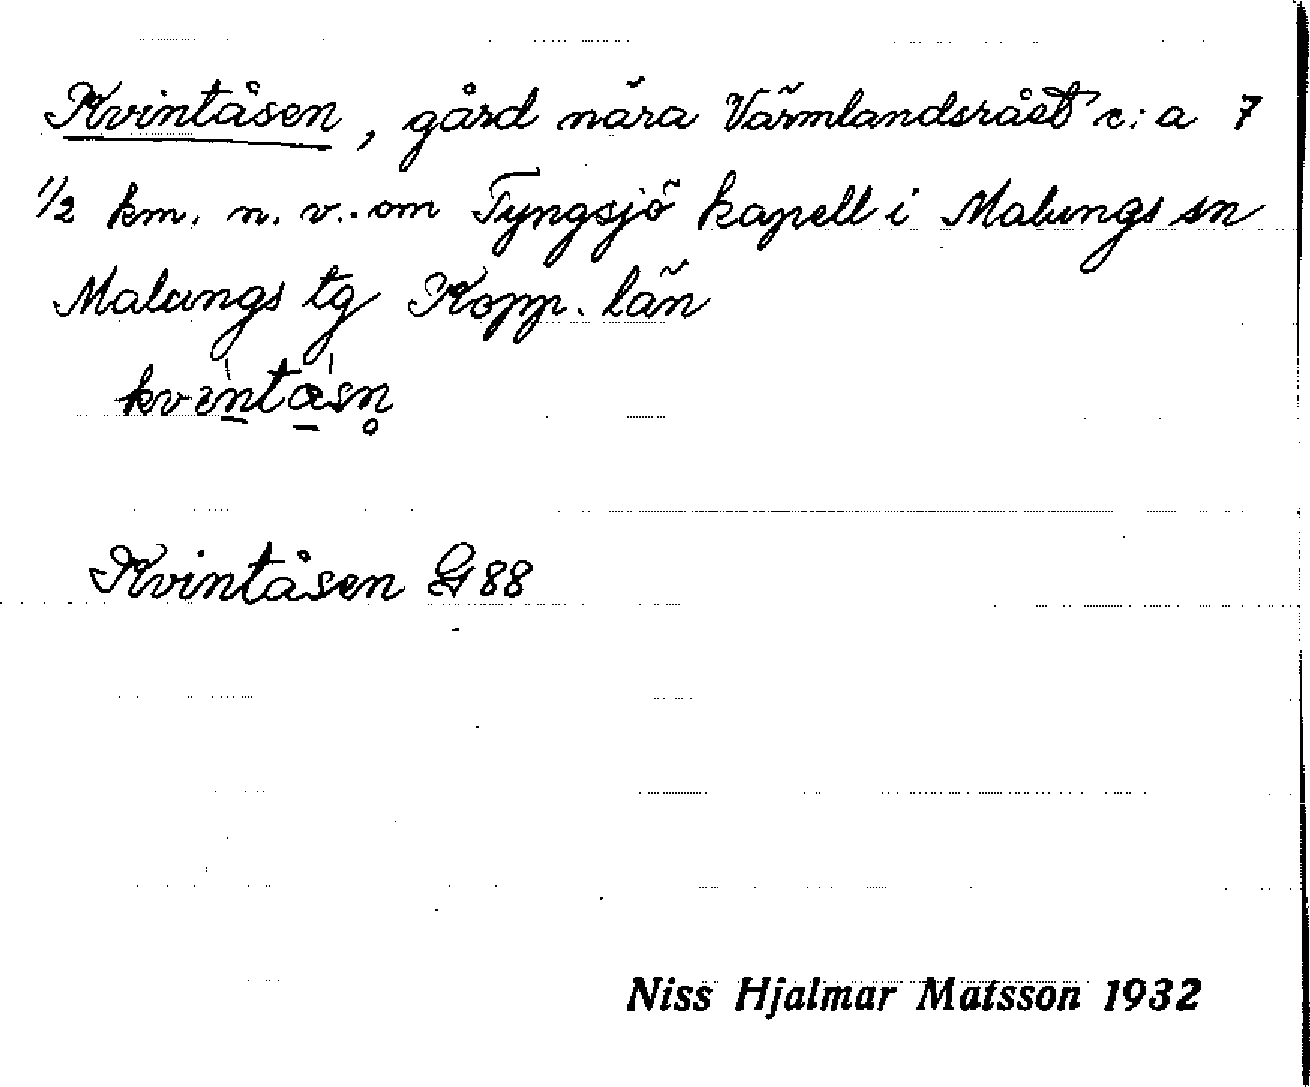 Kvintåsen, gård nära Värmlandsrået c:a 7
1/2 km. n. v. om Tyngsjö kapell i Malungs sn
Malungs tg Kopp. län
Kvintåsen G 88
Niss Hjalmar Matsson 1932